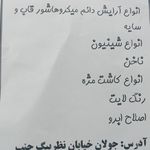 انواع آرایش دائم میکروهاشور قاب و
سایه
انواع شینیون
ناخن
انواع کاشت مژه
رنگ لایت
اصلاح ابرو
آدرس: جولان خیابان نظربیگ جنب